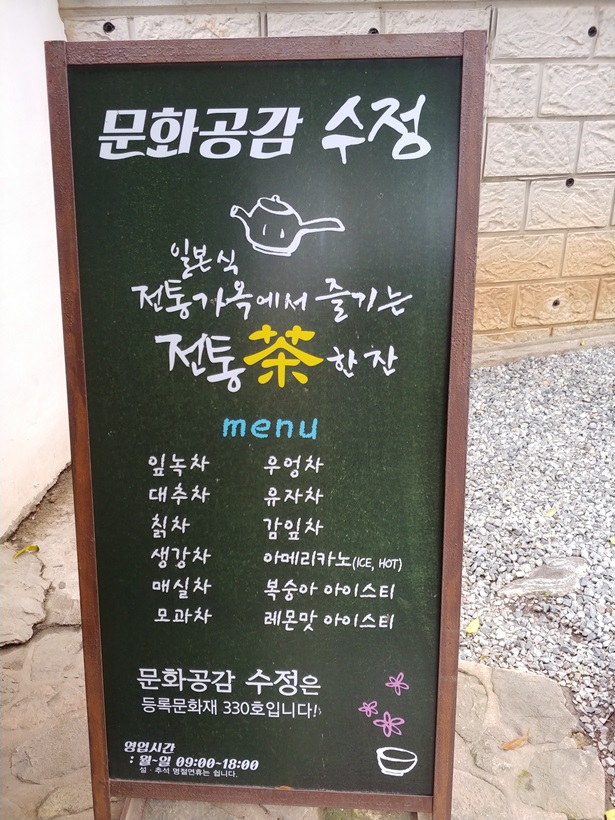 문화공감 수정
일본식
전통가옥에서 즐기는
전통茶한잔
menu
잎녹차 우엉차
대추차 유자차
칡차 감잎차
생강차 아메리카노(ICE, HOT)
매실차 복숭아 아이스티
모과차 레몬맛 아이스티
문화공감 수정은
등록문화재 330호입니다!
영업시간
: 월~일 09:00~18:00
설·추석 명절연휴는 쉽니다.